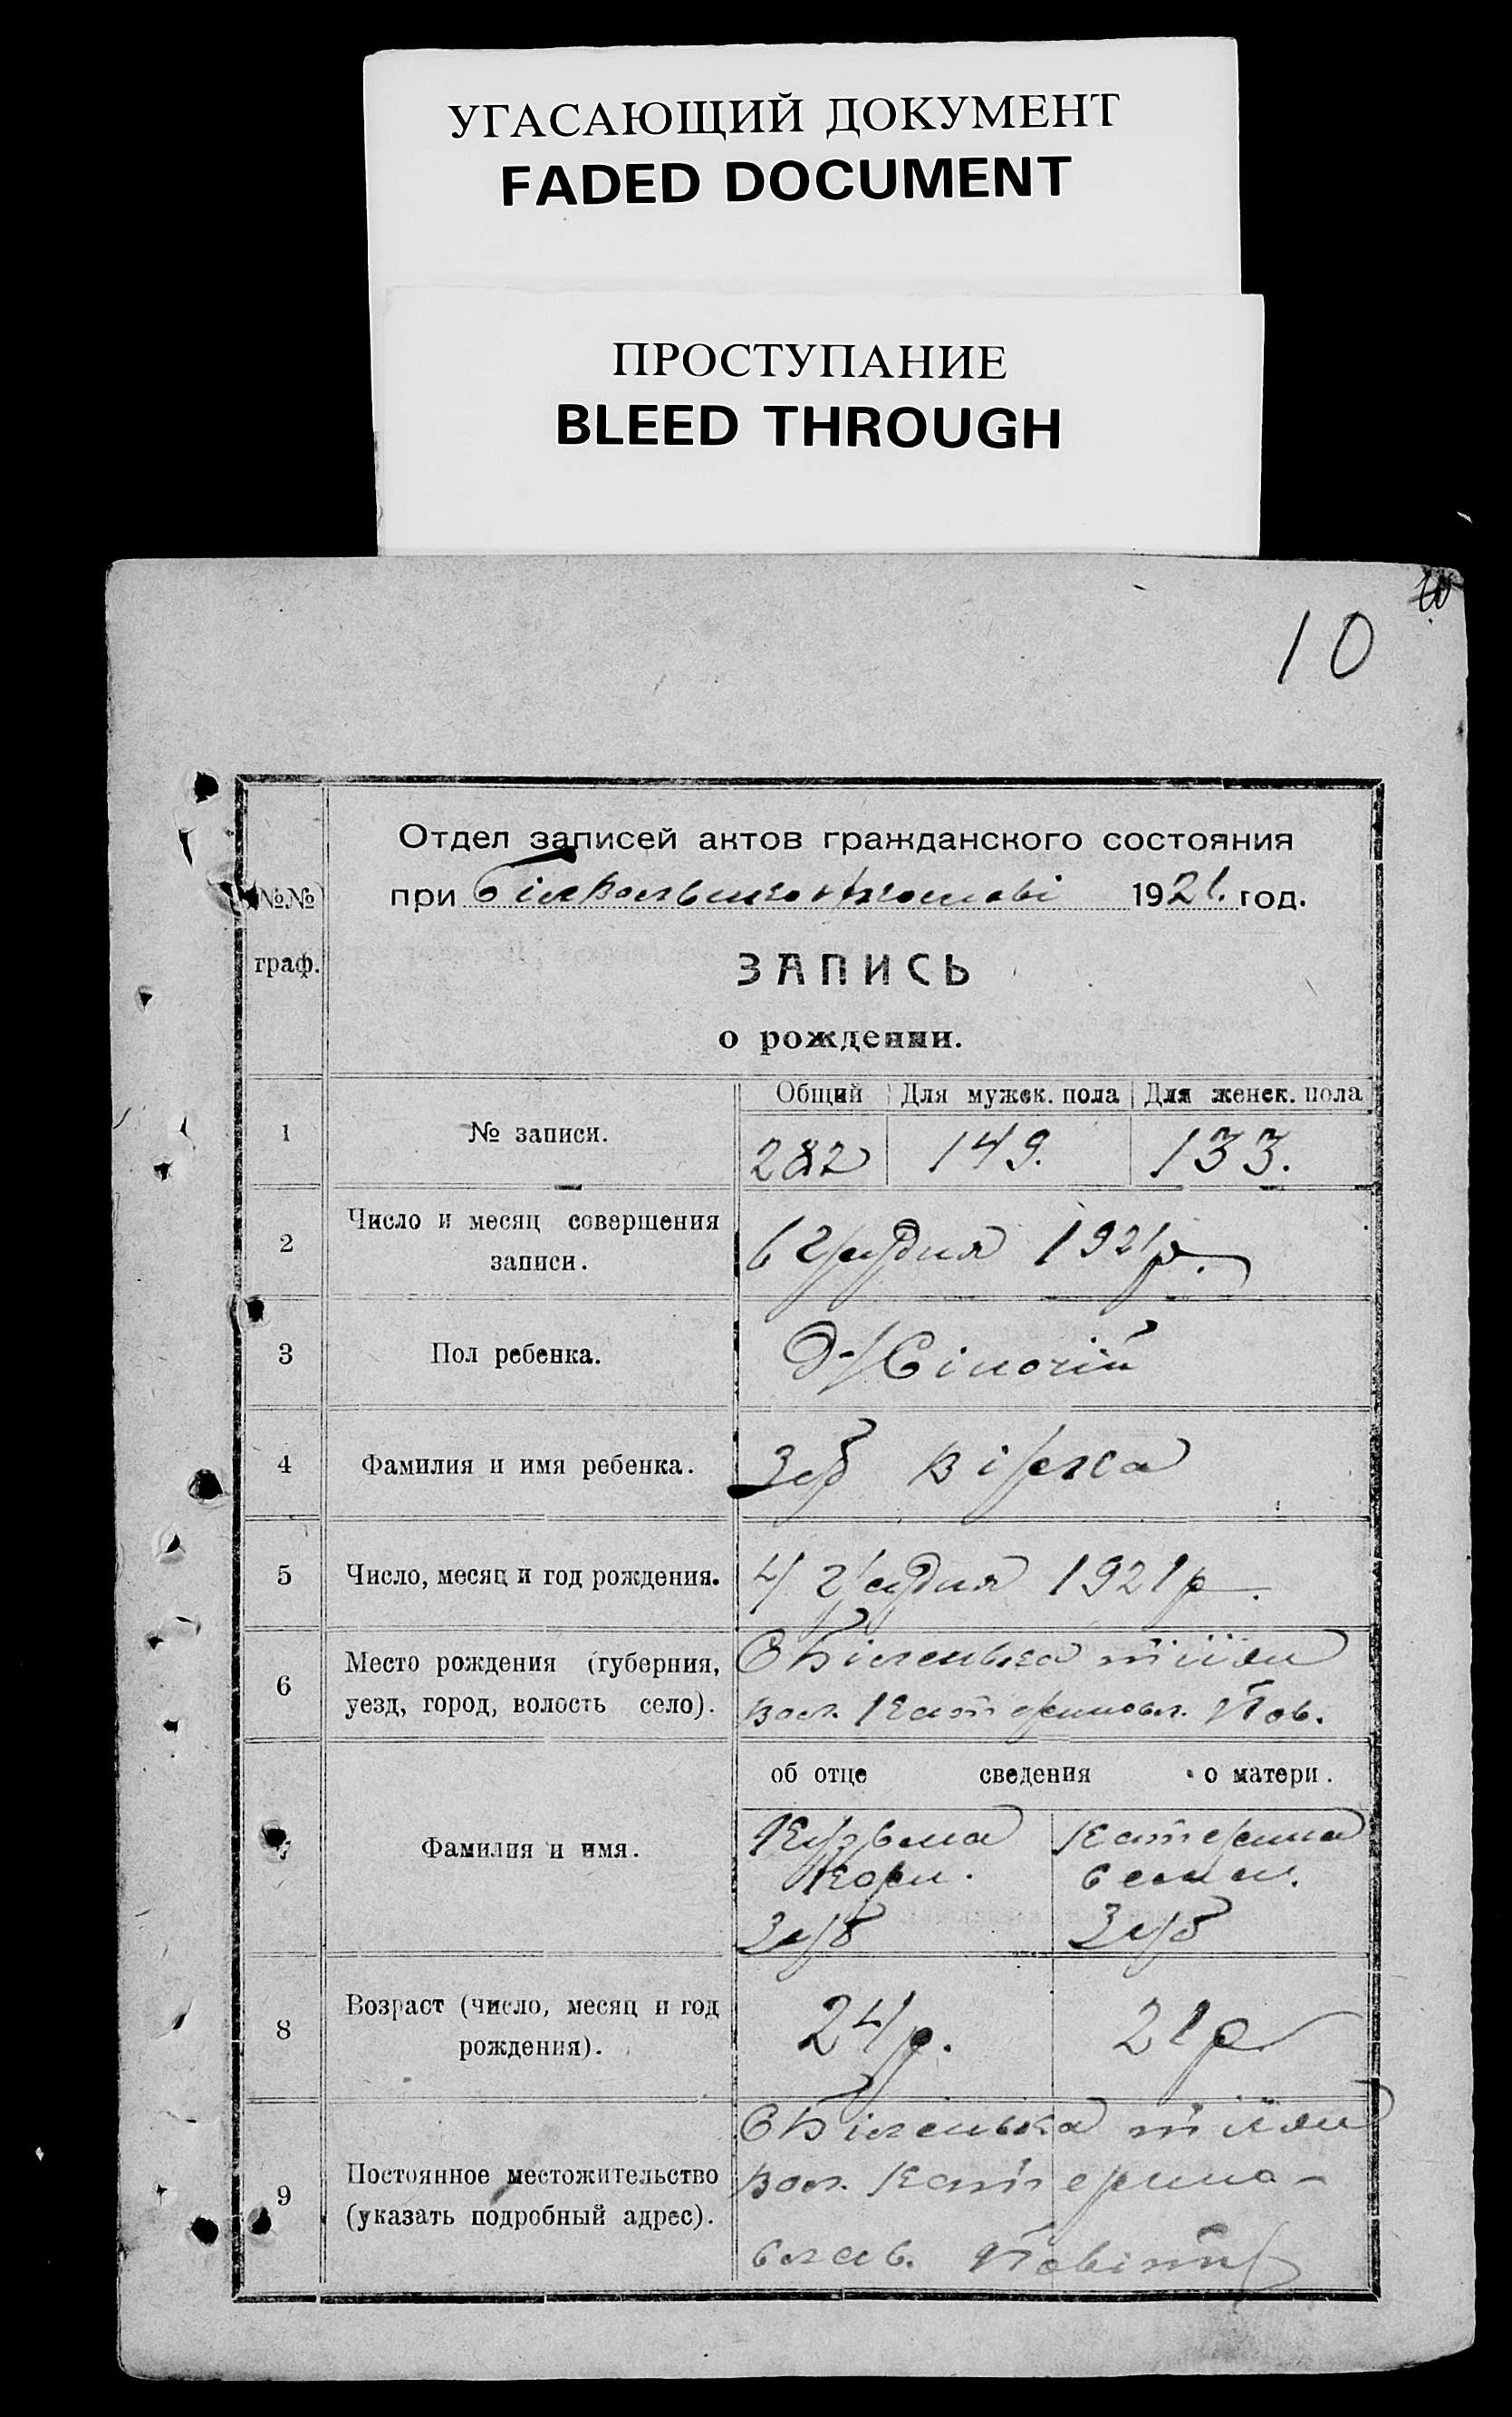 УГАСАЮЩИЙ ДОКУМЕНТ
FADED DOCUMENT
ПРОСТУПАНИЕ
BLEED THROUGH
10
№№
граф.
Отдел записей актов гражданского состояния
при 1921. год.
ЗАПИСЬ
о рождении.
Общий Для мужск. пола Для женск. пола
1 № записи. 282 149. 133.
2 Число и месяц совершения
записи. 6 Грудня 1921р.
3 Пол ребенка. Жіночій
4 Фамилия и имя ребенка. Зуб Вірка
5 Число, месяц и год рождения. 4 Грудня 1921р.
6 Место рождения (губерния,
уезд, город, волость село). С Біленька тії же
вол. Катериновл. Пов.
об отце сведения о матери.
7 Фамилия и имя. Кузьма Катерина
Корн.
Зуб Зуб
8 Возраст (число, месяц и год
рождения). 24р. 21р
9 Постоянное местожительство
(указать подробный адрес). С Біленька тії же
вол. Катерино-
слав. Повіту